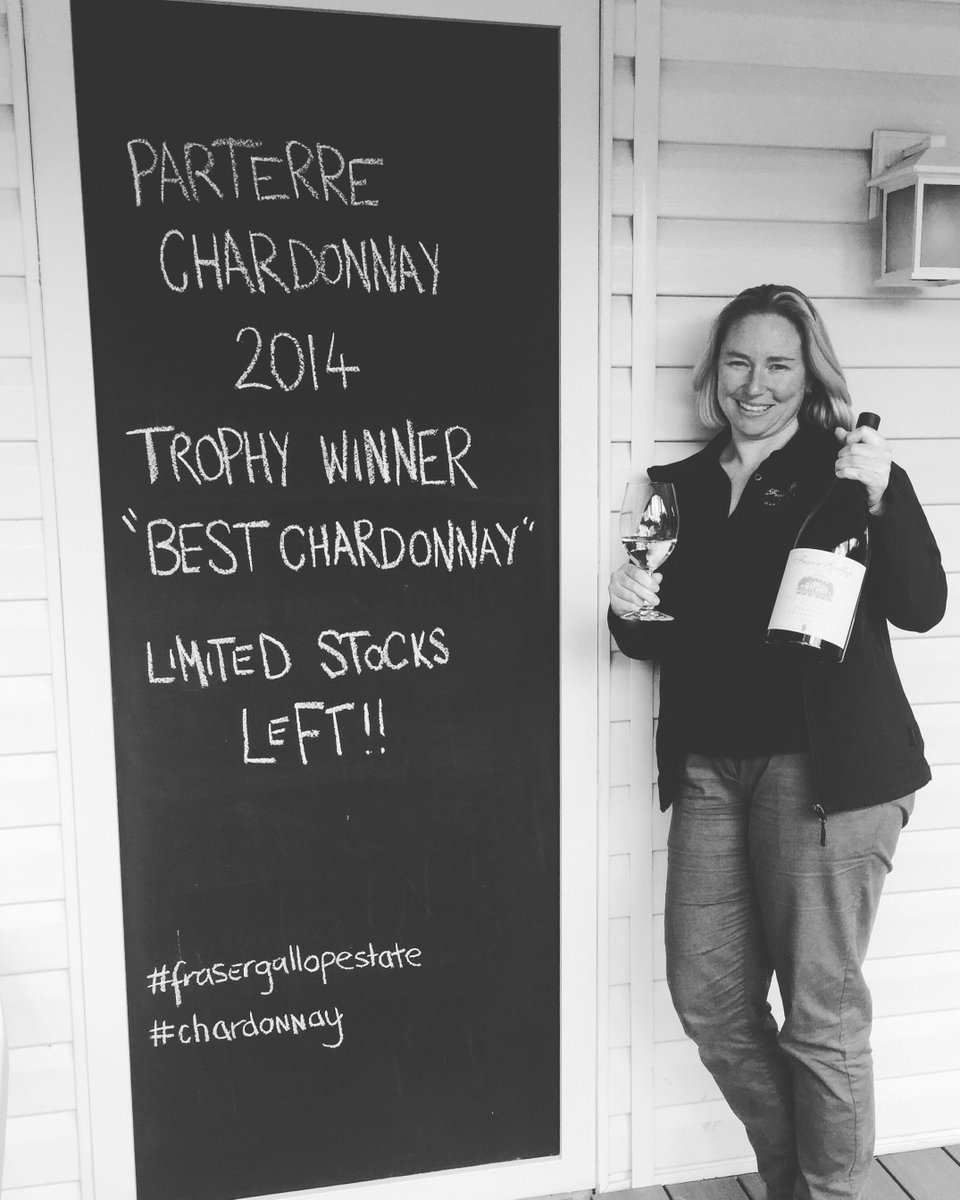 PARTERRE
CHARDONNAY
2014
TROPHY WINNER
"BEST CHARDONNAY"
LIMITED STOCKS
LEFT!!
#frasergallopestate
#chardonnay
Fraser Gallop